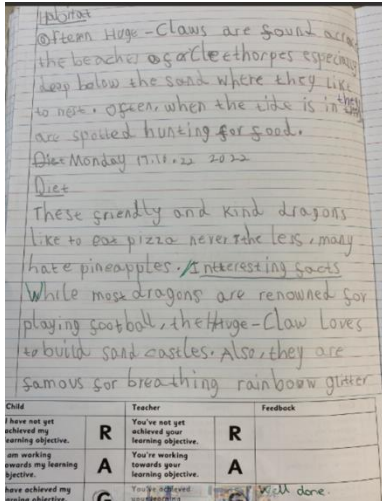 Habitat
Oftern Huge-Claws are found acros
the beaches of Cleethorpes especially
deep below the sand where they like
to nest. Often, when the tide is in they
are spotted hunting for food.
Diet Monday 17.10.22 2022
Diet
These friendly and kind dragons
like to eat pizza never the less, many
hate pineapples. Intteresting facts
While most dragons are renowned for
playing football, the Huge-Claw Loves
to build sand castles. Also, they are
famous for breathing rainboww glitter
Child Teacher Feedback
I have not yet achieved my learning objective. R You've not yet achieved your learning objective. R
I am working towards my learning objective. A You're working towards your learning objective. A
I have achieved my learning objective. G You've achieved your learning G Well done.